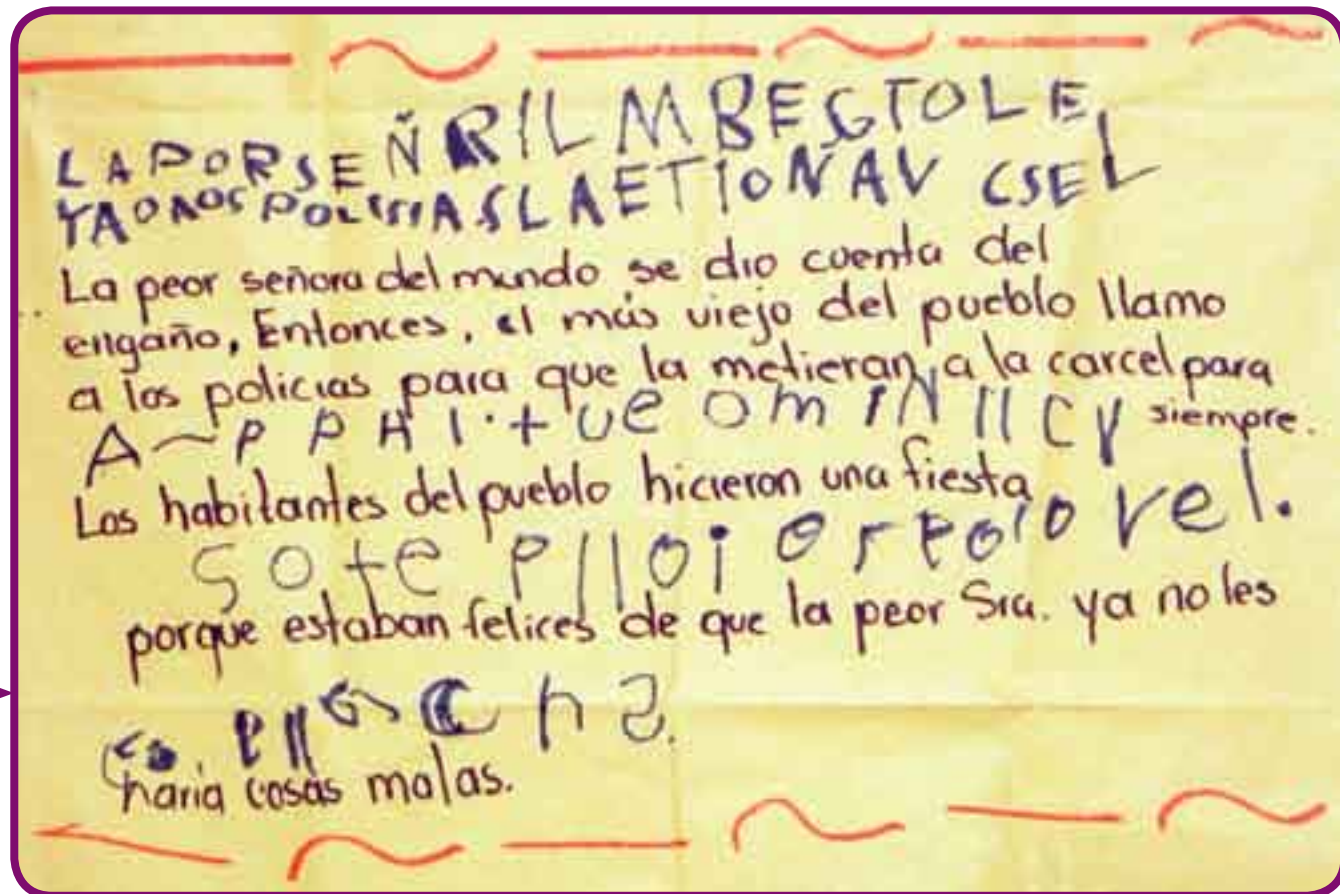 LAPORSEÑRILMBEGTOLE
YAOAOSPOLISIASLAETIOÑAV CSEL
La peor señora del mundo se dio cuenta del
engaño, Entonces, el más viejo del pueblo llamo
a los policias para que la metieran a la carcel para
siempre.
A~PPHI.+UE OMINIICV
Los habitantes del pueblo hicieron una fiesta
SO.te Plloi orpolo rel.
porque estaban felices de que la peor Sra. ya no les
haria cosas malas.